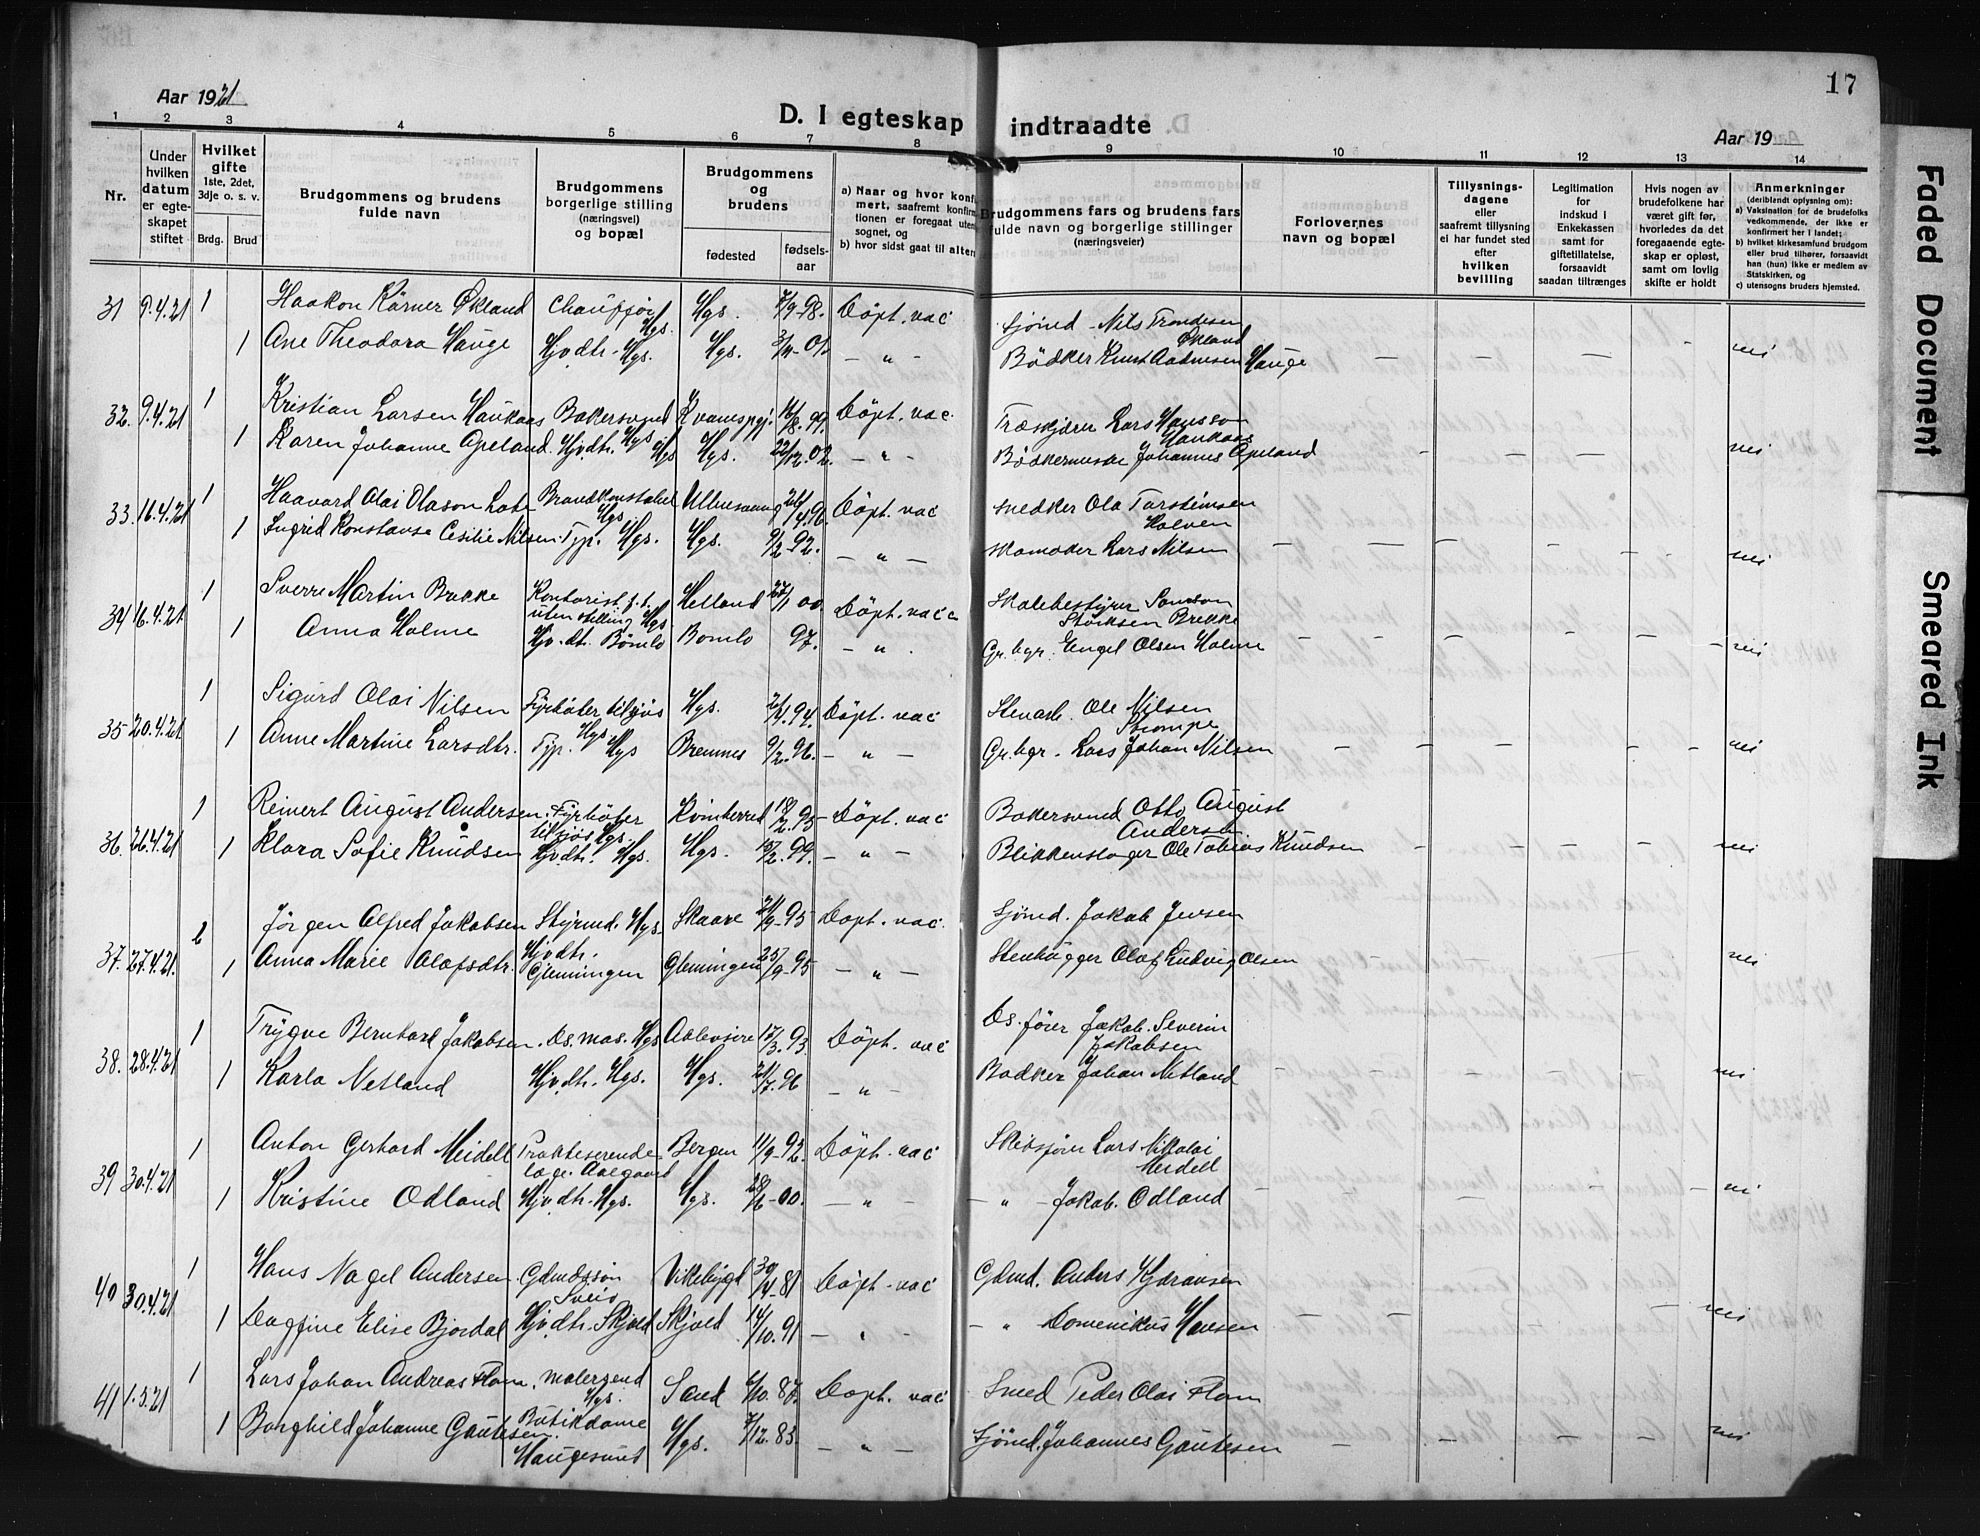 17
Aar 1921
D. I egteskap indtraadte
Aar 19
1 2 3 4 5 6 7 8 9 10 11 12 13 14
Nr.
Under hvilken datum er egteskapet stiftet
Hvilket gifte 1ste, 2det, 3dje o. s. v.
Brdg. Brud
Brudgommens og brudens fulde navn
Brudgommens borgerlige stilling (næringsvei) og bopæl
Brudgommens og brudens
fødested fødselsaar
a) Naar og hvor konfirmert, saafremt konfirmationen er foregaat utensognet, og
b) hvor sidst gaat til alters
Brudgommens fars og brudens fars fulde navn og borgerlige stillinger (næringsveier)
Forlovernes navn og bopæl
Tillysningsdagene eller saafremt tillysning ei har fundet sted efter hvilken bevilling
Legitimation for indskud i Enkekassen samt for giftetillatelse, forsaavidt saadan tiltrænges
Hvis nogen av brudefolkene har været gift før, hvorledes da det foregaaende egteskap er opløst, samt om lovlig skifte er holdt
Anmerkninger (deriblandt oplysning om):
a) Vaksination for de brudefolks vedkommende, der ikke er konfirmert her i landet;
b) hvilket kirkesamfund brudgom eller brud tilhører, forsaavidt han (hun) ikke er medlem av Statskirken, og
c) utensogns bruders hjemsted.
31 9.4.21 1 Haakon Kärner Økland Chauffør Hgs. Hgs. 7/9-98. Döpt. vac Sjömd - Nils Trondesen Økland
1 Ane Theodora Hauge Hjv.dtr. Hgs. Hgs. 3/11-01. — " — Bödker Knut Aadnesen Hauge nei
32. 9.4.21 1 Kristian Larsen Haukaas Bakersvend Hgs Kvamspgj. 16/8.99. Döpt. vac. Træskjærer Lars Hansson Haukaas
1 Karen Johanne Apeland Hjv.dtr. Hgs Hgs. 22/12.02. — " — Bödkermester Johannes Apeland nei
33. 16.4.21 1 Haavard Olai Olason Lote Brandkonstabel Hgs. Ullensvang 26/4.96. Döpt. vac Snedker Ola Torsteinsen Halven
1 Ingrid Konstanse Cesilie Nilsen Typ. Hgs. Hgs. 9/2-92. — " — Skomaker Lars Nilsen nei
34 16.4.21 1 Sverre Martin Brekke Kontorist f.t. uten stilling Hgs Helland 27/1 00. Döpt. vac Skolebestyrer Samson Störksen Brekke
1 Anna Holme Hjv.dtr. Bömlo Bomlo 97. — " — Gr.bgr. Engel Olsen Holme nei
35 20.4.21 1 Sigurd Olai Nilsen Fyrböter tilsjös Hgs Hgs. 2/4.94. Döpt. vac Stenarb. Ole Nilsen Stompe
1 Anne Martine Larsdtr. Typ. Hgs Bremnes 9/2.96. — " — Gr.bgr. Lars Johan Nilsen nei
36. 26.4.21 1 Reinert August Andersen Fyrböter tilsjös Hgs. Kvinherred 18/2.95 Döpt. vac Bakersvend Otto August Andersen
1 Klara Sofie Knudsen Hjv.dtr. Hgs. Hgs. 15/2.99. — " — Blikkenslager Ole Tobias Knudsen nei
37. 27.4.21. 2 Jörgen Alfred Jakobsen Styrmd. Hgs. Skaare 21/9-95 Döpt. vac. Sjömd. Jakob Jensen
1 Anna Marie Olafsdtr. Hjv.dtr. Glemingen Glemingen 25/9-95 — " — Stenhugger Olaf Ludvig Olsen nei
38. 28.4.21 1 Trygve Bernhard Jakobsen. Ds. mas. Hgs Aalvsire 17/3.93 Döpt. vac Ds. förer Jakob Severin Jakobsen
1 Karla Netland Hjv.dtr. Hgs. Hgs. 21/7.96 — " — Bodker Johan Netland nei
39 30.4.21 1 Anton Gerhard Meidell Praktiserende læge. Aalgaard Bergen 11/9-92. Döpt. vac Skibsförer Lars Nikolai Meidell
1 Kristine Odland Hjv.dtr. Hgs. Hgs. 28/6-00. — " — — " — Jakob Odland nei
40 30.4.21 1 Hans Nagel Andersen Gdmdssön Sveio Vikebygd 30/4-81 Döpt. vac Gdmd. Anders Hjöransen
1 Dagfine Elise Bjordal Hjv.dtr. Skjold Skjold 14/10.91 — " — — " — Domenikus Hansen nei
41 1.5.21 1 Lars Johan Andreas Flom. malersvend Hgs. Sand 6/10.87. Dopt. vac Smed Peder Olai Flom
1 Borghild Johanne Gautesen. Butikdame Haugesund Hgs. 7/12.83. — " — Sjömd. Johannes Gautesen nei
Faded Document
Smeared Ink